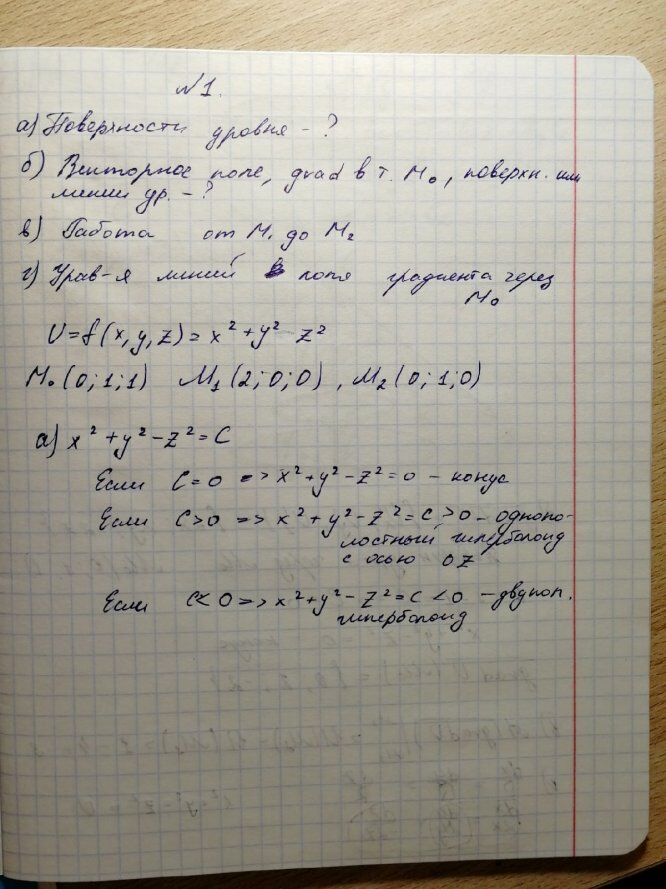 №1.
а) Поверхности уровня - ?
б) Векторное поле, grad в т. M₀, поверхн. или
линии ур. - ?
в) Работа от M₁ до M₂
г) Урав-я линий поля градиента через
M₀
U = f(x, y, z) = x² + y² - z²
M₀(0; 1; 1) M₁(2; 0; 0), M₂(0; 1; 0)
а) x² + y² - z² = C
Если C = 0 => x² + y² - z² = 0 - конус
Если C > 0 => x² + y² - z² = C > 0 - однопо-
лостный гиперболоид
с осью OZ
Если C < 0 => x² + y² - z² = C < 0 - двупол.
гиперболоид